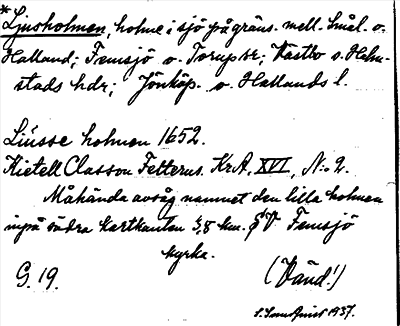 *Ljusholmen, holme i sjö på gräns. mell. Smål. o.
Halland; Femsjö o. Torup sr; Västbo o. Halm-
stads hdr; Jönköp. o. Hallands l.
Liusse holmen 1652.
Kietell Classon Felterus. KrA, XVI, N:o 2.
Måhända avsåg namnet den lilla holmen
inpå södra kartkanten 3,8 km. SV Femsjö
kyrka.
G. 19.
(Vänd!)
1937.